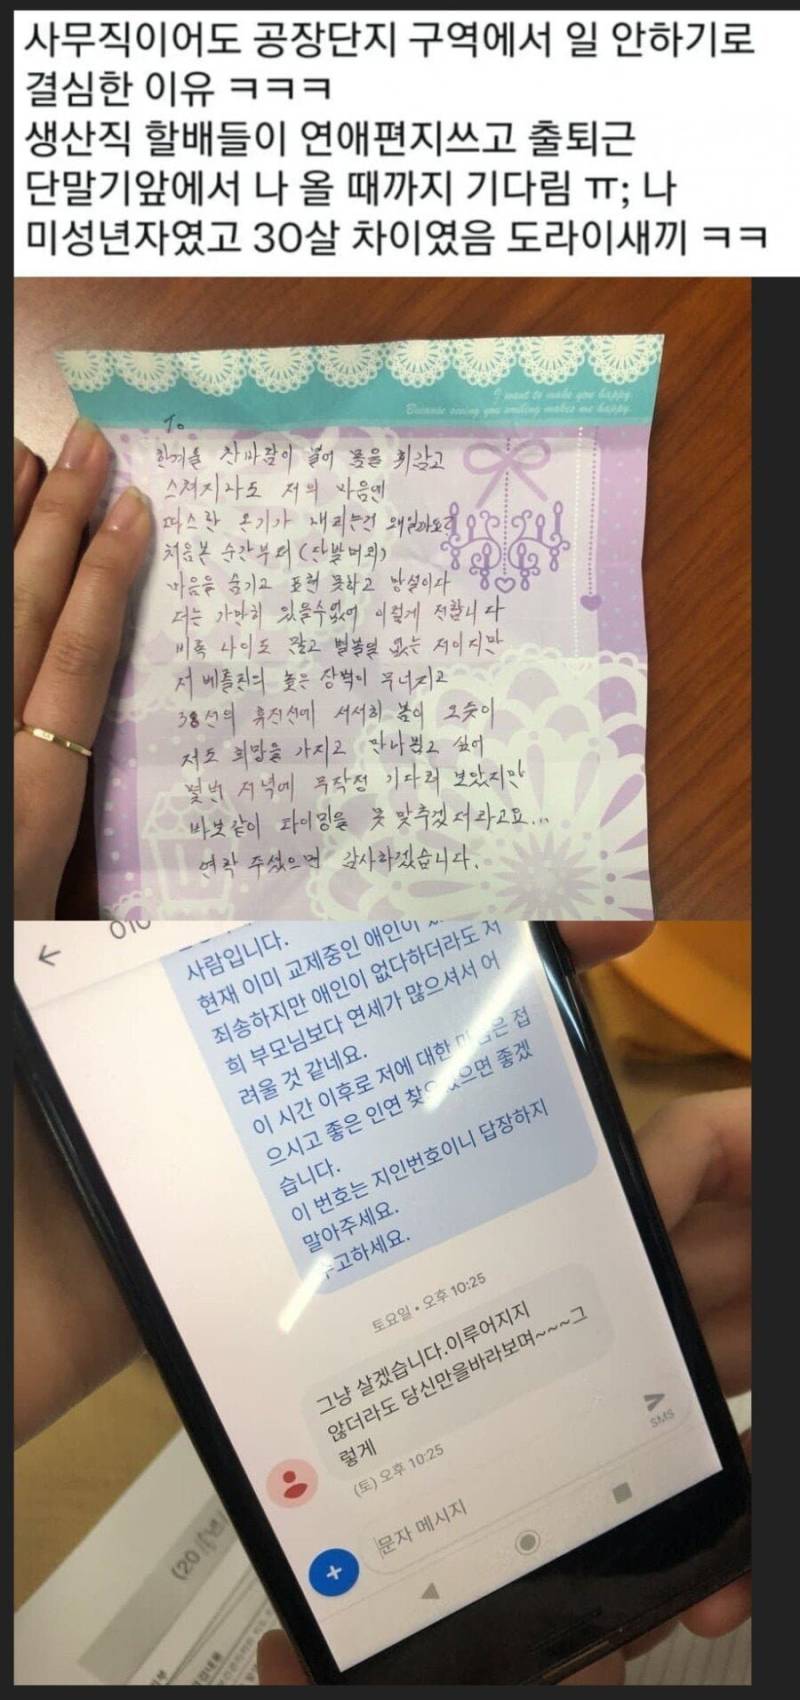 사무직이어도 공장단지 구역에서 일 안하기로
결심한 이유 ㅋㅋㅋ
생산직 할배들이 연애편지쓰고 출퇴근
단말기앞에서 나 올 때까지 기다림 ㅠ; 나
미성년자였고 30살 차이였음 도라이새끼 ㅋㅋ
I want to make you happy.
Because seeing you smiling makes me happy.
To
한겨울 찬바람이 불어 몸을 휘감고
스쳐지나도 저의 마음엔
따스한 온기가 내피는건 왜일까요?
처음본 순간부터 (단발머리)
마음을 숨기고 표현 못하고 망설이다
더는 가만히 있을수없어 이렇게 전합니다
비록 나이도 많고 별볼일 없는 저이지만
저 베를린의 높은 장벽이 무너지고
38선의 휴전선에 서서히 봄이 오듯이
저도 희망을 가지고 만나뵙고 싶어
몇번 저녁에 무작정 기다려 보았지만
바보같이 타이밍을 못 맞추겠더라고요...
연락 주셨으면 감사하겠습니다.
010
사람입니다.
현재 이미 교제중인 애인이
죄송하지만 애인이 없다하더라도 저
희 부모님보다 연세가 많으셔서 어
려울 것 같네요.
이 시간 이후로 저에 대한 은 접
으시고 좋은 인연 으면 좋겠
습니다.
이 번호는 지인번호이니 답장하지
말아주세요.
수고하세요.
토요일 • 오후 10:25
그냥 살겠습니다.이루어지지
않더라도 당신만을바라보며~~~그
렇게
(토) 오후 10:25
문자 메시지
SMS
(20 년